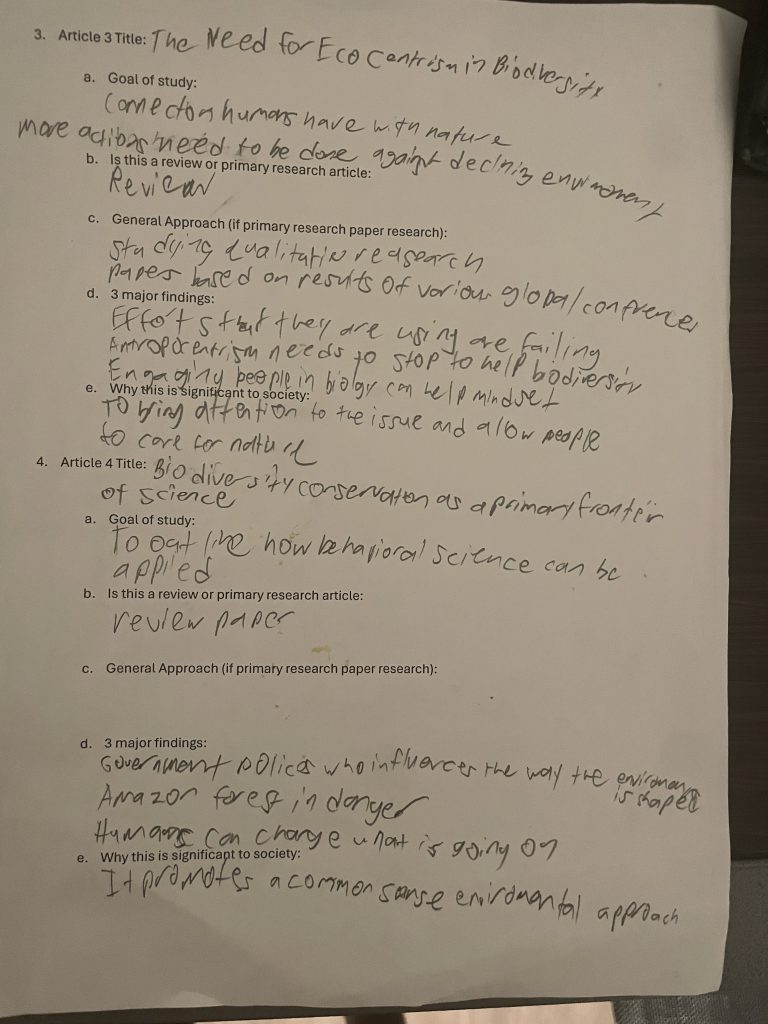 3. Article 3 Title: The Need for Eco Centrism in Biodiversity
a. Goal of study:
Connection humans have with nature
more actions need to be done against declining enviroment
b. Is this a review or primary research article:
Review
c. General Approach (if primary research paper research):
Studying qualitative reasearch
papers based on results of various global confrences
d. 3 major findings:
Effort s that they are using are failing
Antroporentrism needs to stop to help biodiversity
Engaging people in biolgy can help mindset
e. Why this is significant to society:
To bring attention to the issue and allow people
to care for nature
4. Article 4 Title: Biodiversity conservation as a primary frontier
of science
a. Goal of study:
To outline how behavioral science can be
applied
b. Is this a review or primary research article:
review paper
c. General Approach (if primary research paper research):
d. 3 major findings:
Government polices who influences the way the
is shaped
Amazon forest in danger
Humans can change what is going on
e. Why this is significant to society:
It promotes a common sense enirdmental approach